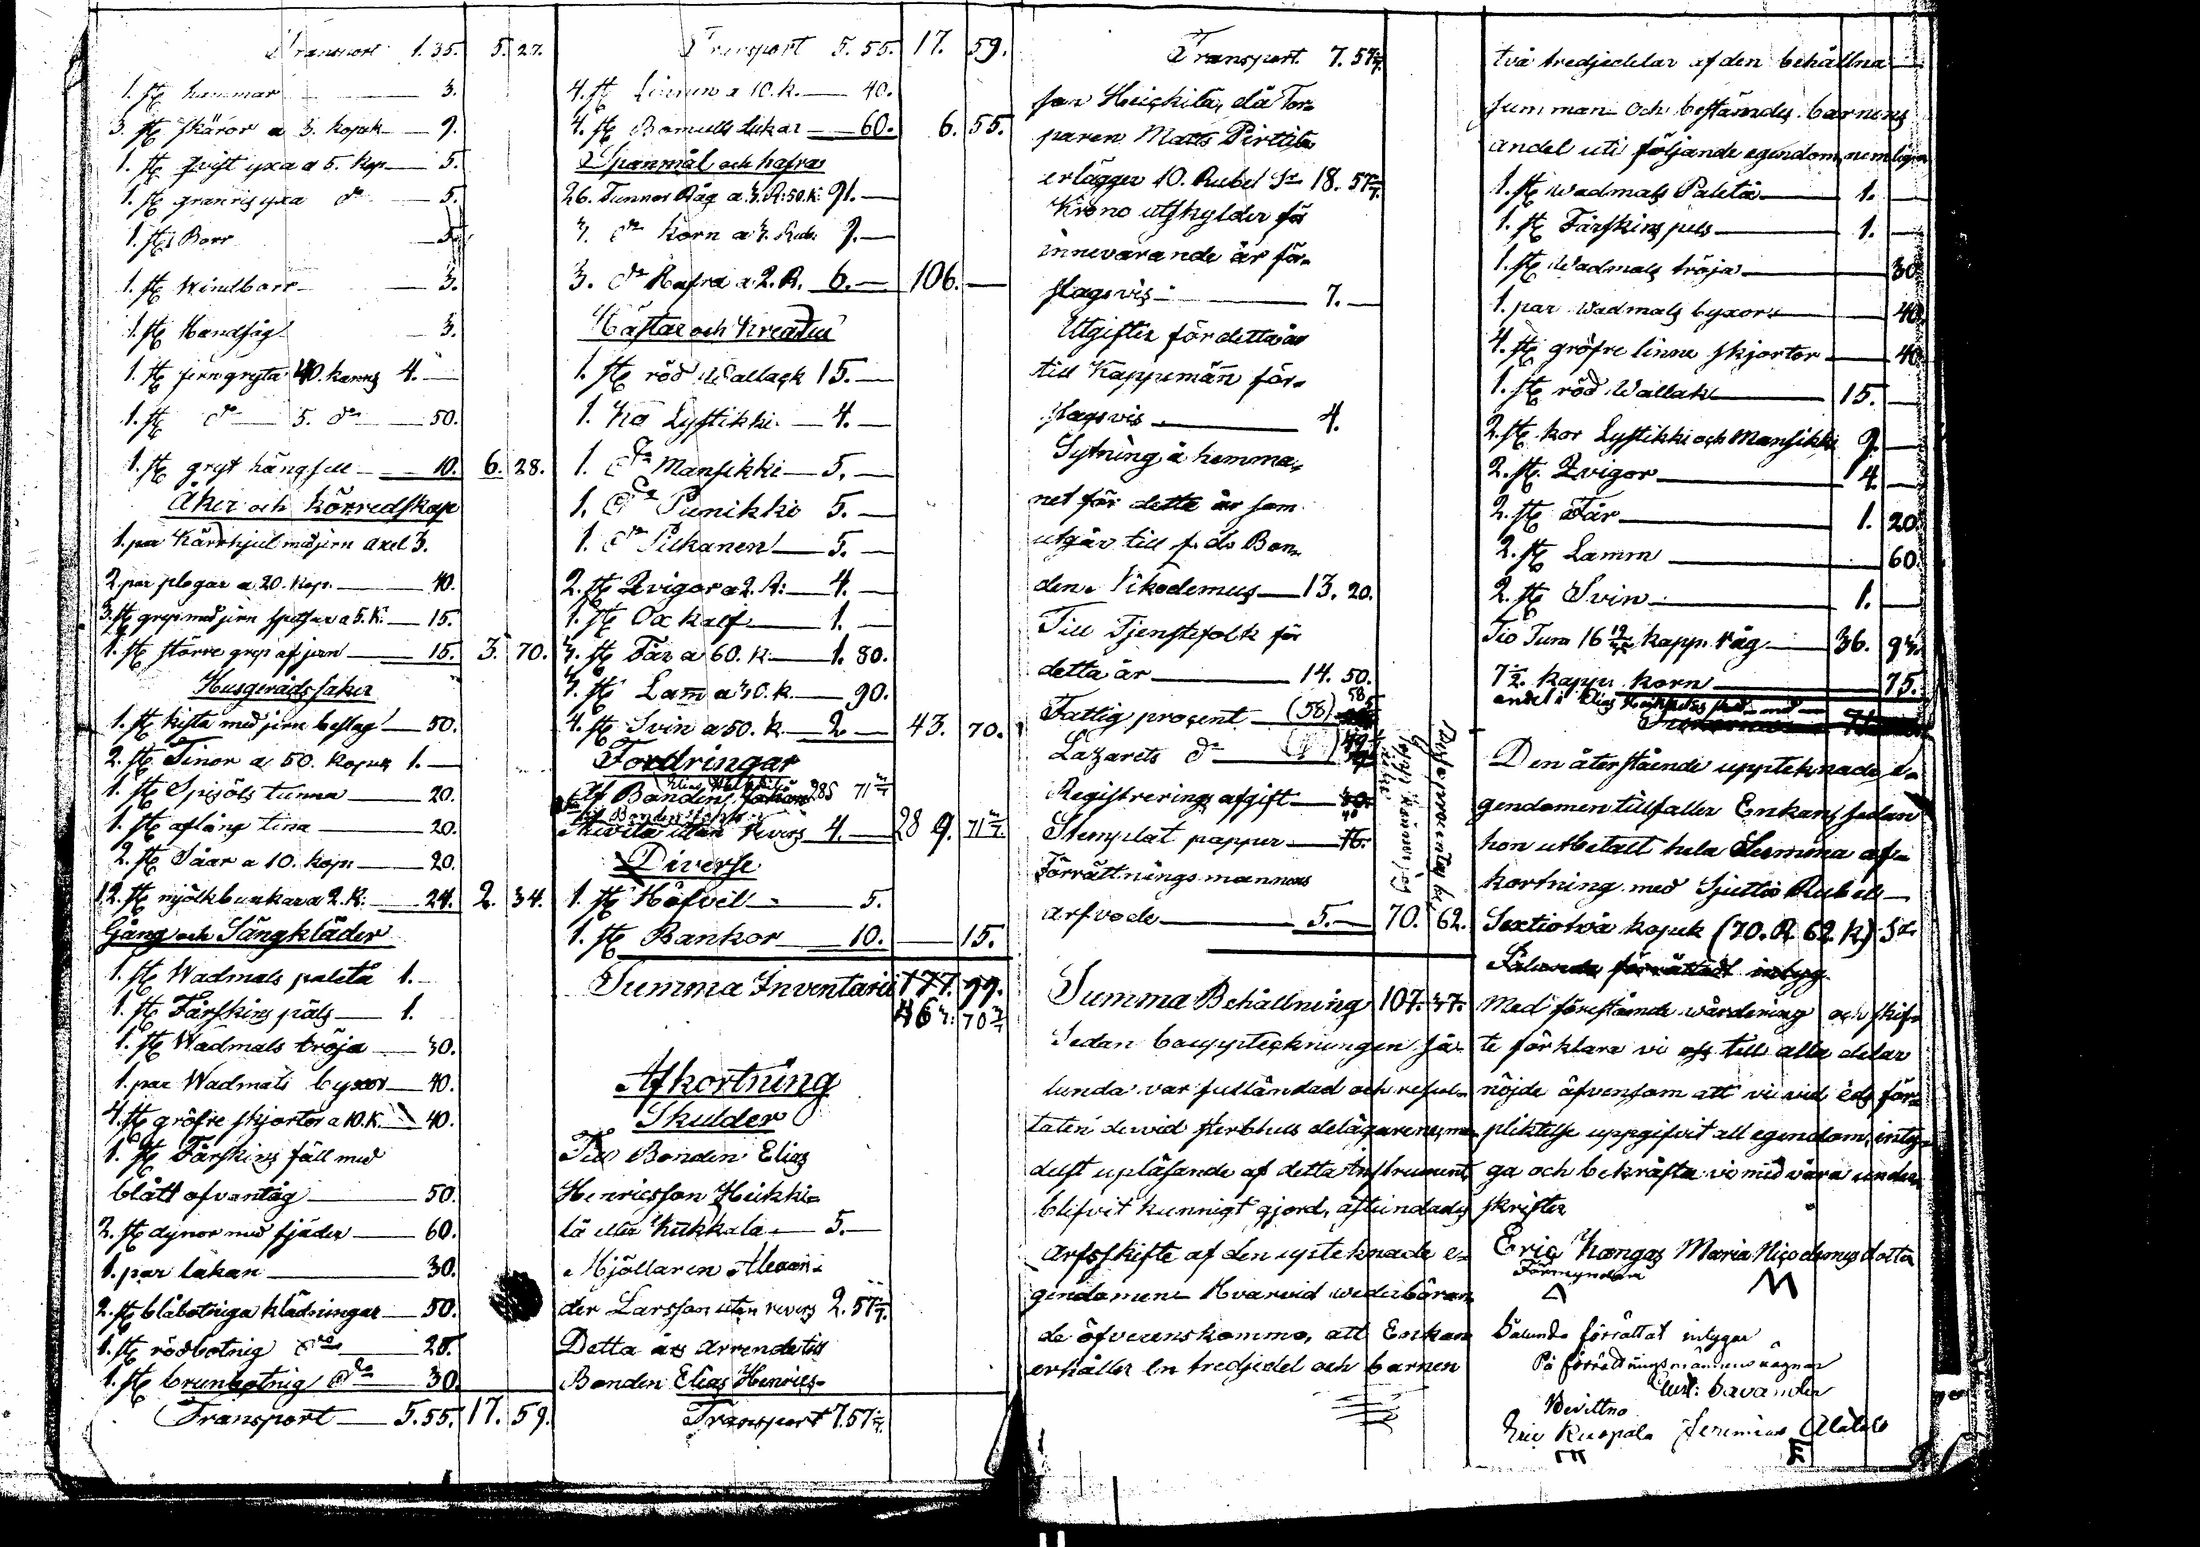 Transport 1. 35. 5. 27.
1. st hammar 3.
3. st skäror a 3. kopek 9.
1. st qvist yxa a 5. kop 5.
1. st granris yxa do 5.
1. st Borr 5.
1. st Windborr 3.
1. st Handsåg 3.
1. st jerngryta 40. kanns 4.
1. st do 5. do 50.
1. st gryt hängsell 10. 6. 28.
Åker och körredskap
1. par Kärrhjul med jern axel 3.
2. par plogar a 20. kop. 40.
3. st grep med jern spetsar a 5. K. 15.
1. st större grep af jern 15. 3. 70.
Husgerådssaker
1. st kista med jern beslag 50.
2. st Tinor a 50. kopek 1.
1. st Spisöls tunna 20.
1. st aflång tina 20.
2. st Såar a 10. kop 20.
12. st mjölkbunkar a 2. K. 24. 2. 34.
Gång och Sängkläder
1. st Wadmals paletå 1.
1. st Fårskins päls 1.
1. st Wadmals tröja 30.
1. par Wadmals byxor 40.
4. st gröfre skjortor a 10. K. 40.
1. st Fårskins fäll med
blått ofvantåg 50.
2. st dynor med fjäder 60.
1. par lakan 30.
2. st blåbotniga klädningar 50.
1. st rödbotnig do 25.
1. st brunbotnig do 30.
Transport 5. 55. 17. 59.
Transport 5. 55. 17. 59.
4. st Linnen a 10. k. 40.
4. st Bomulls dukar 60. 6. 55.
Spanmål och hafra
26. Tunnor Råg a 3. R: 50. K: 91.
3. do korn a 3. Rub. 9.
3. do Hafra a 2. R. 6. 106.
Hästar och Kreatur
1. st röd Wallack 15.
1. ko Lystikki 4.
1. do Mansikki 5.
1. do Punikki 5.
1. do Pilkanen 5.
2. st Qvigor a 2. R: 4.
1. st Ox kalf 1.
3. st Får a 60. K 1. 80.
3. st Lam a 30. k. 90.
4. st Svin a 50. k. 2. 43. 70.
Fordringar
Af Bonden 285 71 3/7
utan revers 4. 289. 71 3/7
Diverse
1. st Höfvel 5.
1. st Bankor 10. 15.
Summa Inventarii 177. 99.
463. 70 3/7
Afkortning
Skulder
Till Bonden Elias
Henricsson Heikki-
lä eller Kukkala 5.
Mjöllaren Alexan-
der Larsson utan revers 2. 57 1/7.
Detta års Arrende till
Bonden Elias Henrics-
Transport 7. 57 1/7.
Transport 7. 57 1/7.
son Heickilä, då Tor-
paren Matts Pirttilä
erlägger 10. Rubel Sr 18. 57 1/7.
Krono utskylder för
innevarande år för-
slagsvis 7.
Utgifter för detta år
till Kappemän för-
slagsvis 4.
Sytning å hemma-
net för detta år som
utgår till f. d. Bon-
den Nikodemus 13. 20.
Till Tjenstefolk för
detta år 14. 50.
Fattig procent (58) 58
Lazarets do
Registrerings afgift
Stemplat papper
Förrättningsmannens
arfvode 5. 70. 62.
Summa Behållning 107. 37.
Sedan bouppteckningen så-
lunda var fulländad och resul-
taten derwid sterbhus delägarene, me-
delst upläsande af detta Instrument,
blifvit kunnigt gjord, åstundades
Arfsskifte af den upteknade e-
gendomen. Hvarvid wederböran-
de öfverenskommo, att Enkan
erhåller En tredjedel och barnen
två tredjedelar af den behållna
summan och bestämdes barnens
andel uti följande egendom, nemligen
1. st Wadmals Paletå 1.
1. st Fårskins pels 1.
1. st Wadmals tröja 30
1. par Wadmals byxor 40.
4. st gröfre linne skjortor 40.
1. st röd Wallak 15.
2. st kor Lystikki och Mansikki 9.
2. st Qvigor 4.
2. st Får 1. 20.
2. st Lamm 60.
2. st Svin 1.
Tio Tunn 16 kapp. råg 36. 93.
7 1/2 kappe korn 75.
Den återstående uppteknade e-
gendomen tillfaller Enkan, sedan
hon utbetalt hela Summa af-
kortning med Sjuttio Rubel
Sextiotvå kopek (70. R 62 K) Sr.
Med förestående wärdering och skif-
te förklara vi oss till alla delar
nöjde äfvensom att vi vid eds för-
pliktelse uppgifvit all egendom, inty-
ga och bekräfta vi med våra under-
skrifter
Eric Kangas Maria Nicodemus dotter
Förmyndare
M
Sålunda förrättat intygar
På förrättningsmannens vägnar
Gust: Savander
Bevittna
Eric Ruspala Jeremias Alatalo